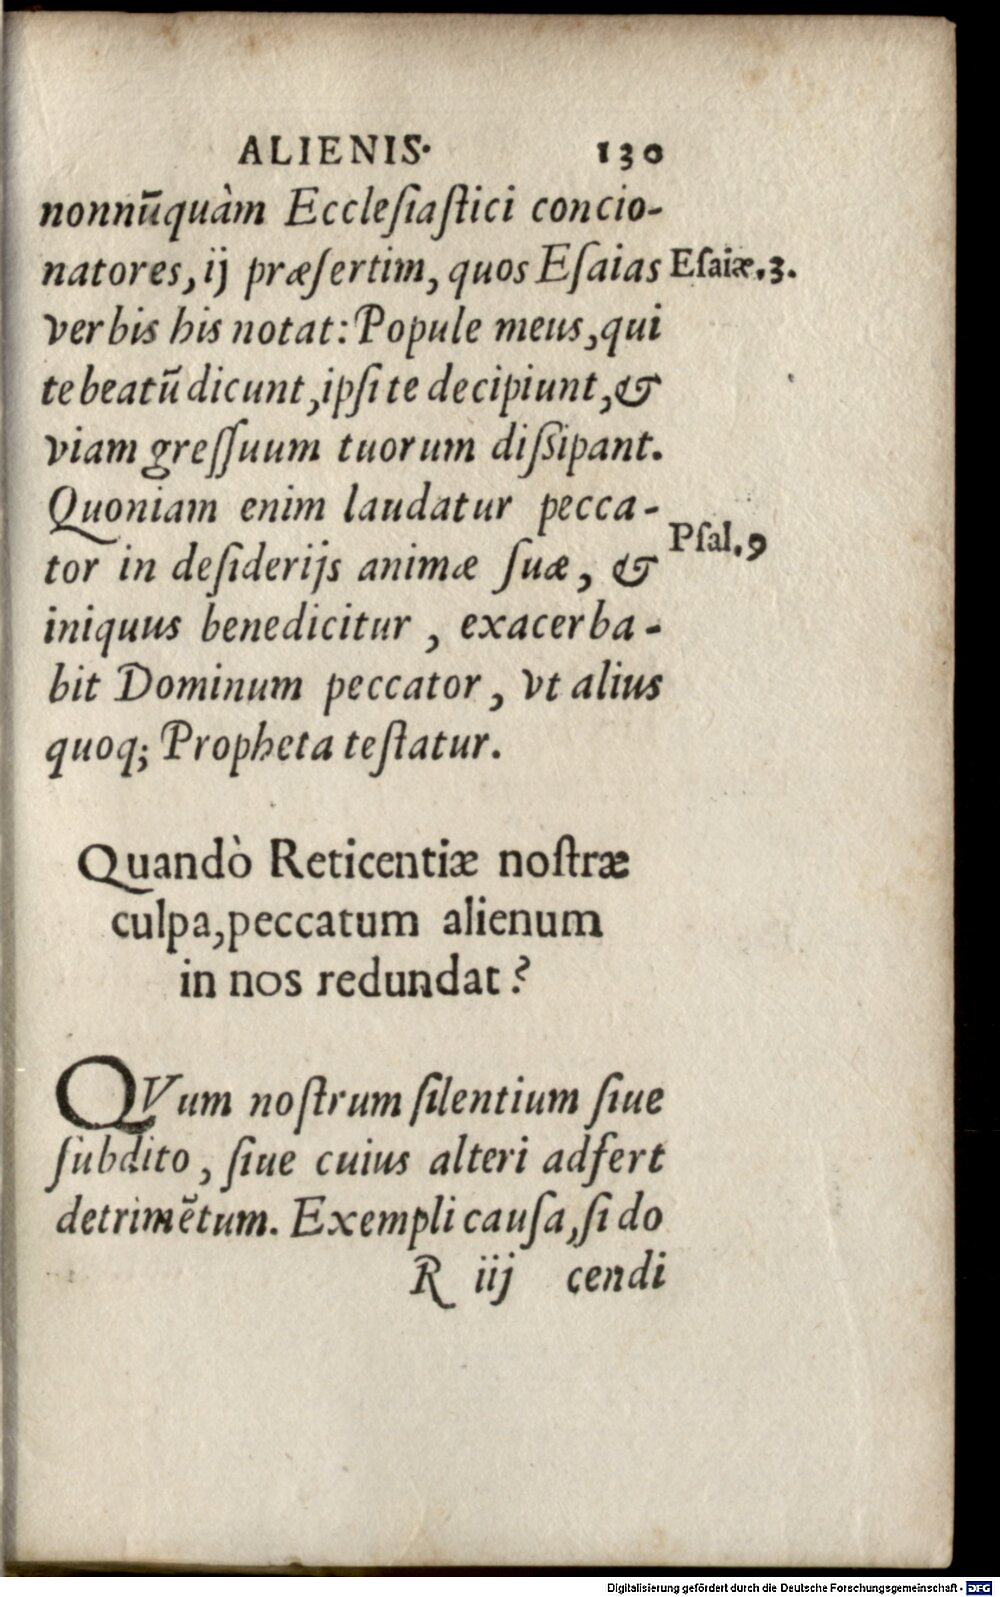 ALIENIS. 130
nonnũquàm Eccleſiaſtici concio-
natores, ij præſertim, quos Eſaias Eſaiæ.3.
verbis his notat: Popule meus, qui
te beatũ dicunt, ipſi te decipiunt, &
viam greſſuum tuorum diſsipant.
Quoniam enim laudatur pecca-
tor in deſiderijs animæ ſuæ, & Pſal.9
iniquus benedicitur, exacerba-
bit Dominum peccator, vt alius
quoq; Propheta teſtatur.
Quandò Reticentiæ noſtræ
culpa, peccatum alienum
in nos redundat?
QVum noſtrum ſilentium ſiue
ſubdito, ſiue cuius alteri adfert
detrimẽtum. Exempli cauſa, ſi do
R iij cendi
Digitalisierung gefördert durch die Deutsche Forschungsgemeinschaft - DFG